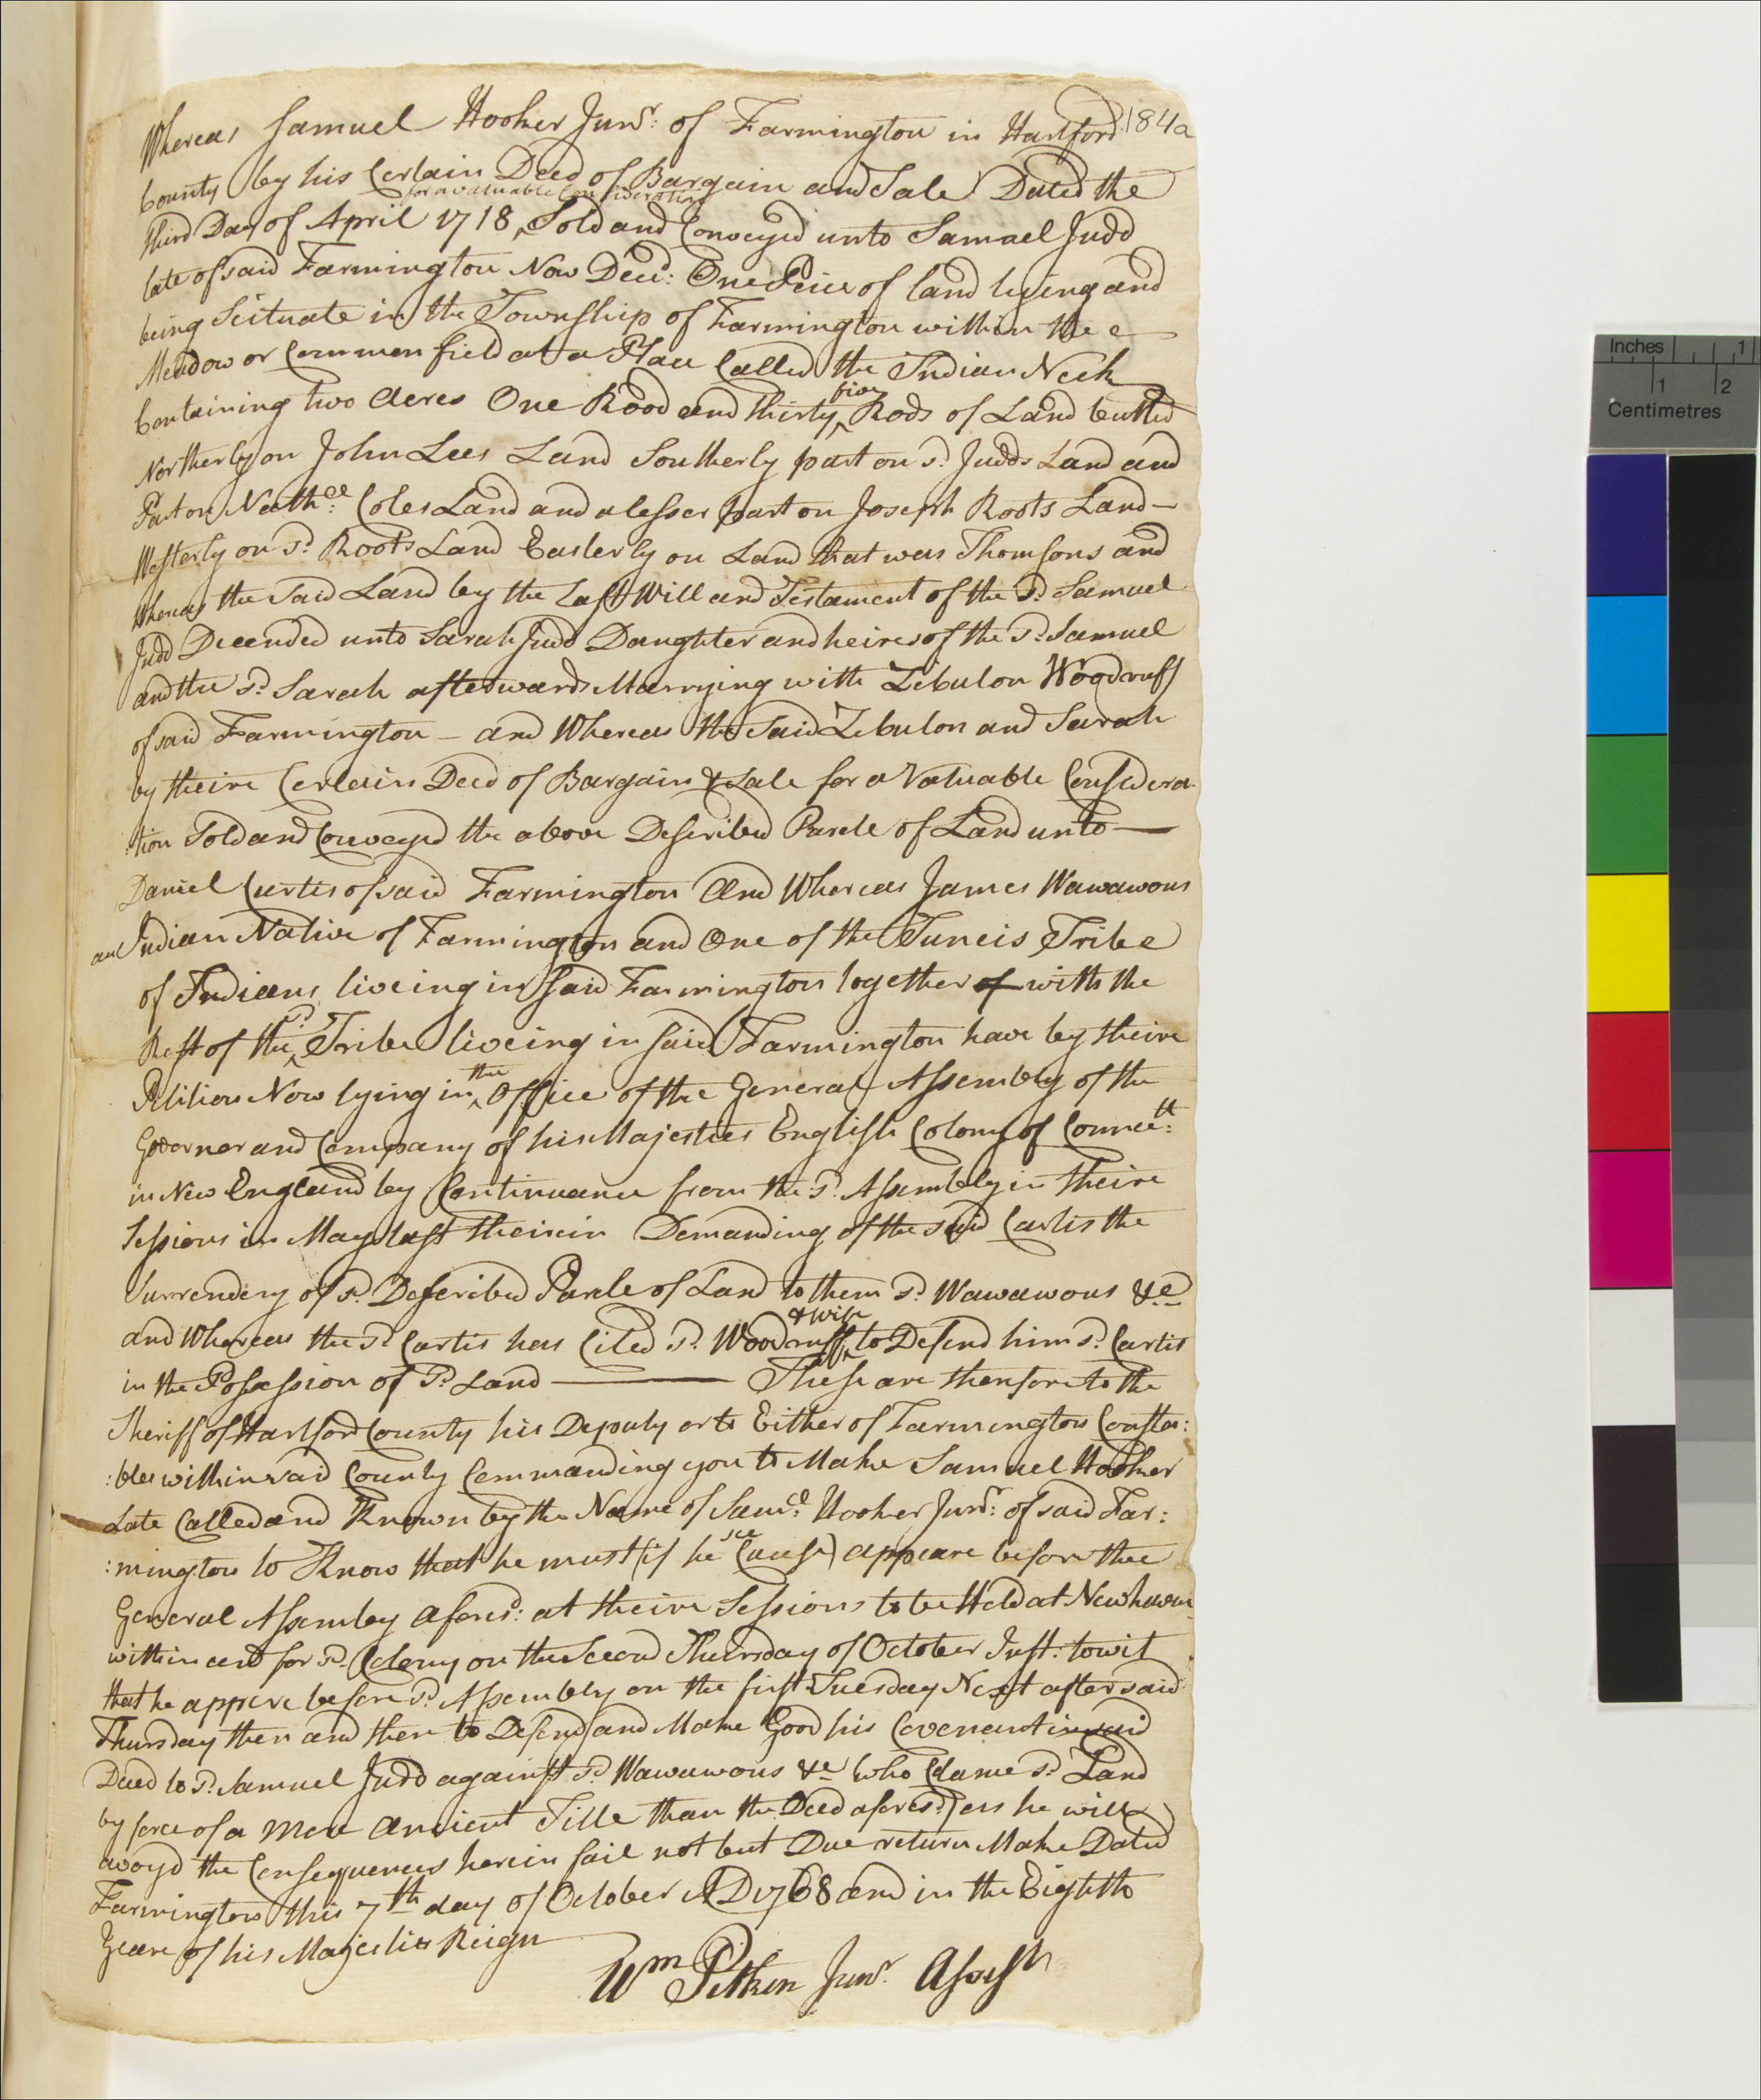 184a
Whereas Samuel Hooker Junr: of Farmington in Hartford
County by his Certain Deed of Bargain and Sale Dated the
for a valuable Consideration
third Day of April 1718 ^ Sold and Conveyed unto Samuel Judd
late of said Farmington Now Decd: One Peice of land lyeing and
being Scituate in the Township of Farmington within the
Meadow or Common field at a Place Called the Indian Neck
five
Containing two Acres One Rood and thirty ^ Rods of Land butted
Northerly on John Lees Land Southerly part on sd. Judds Land and
Part on Nathll: Coles Land and a lesser part on Joseph Roots Land —
Westerly on sd. Roots Land Easterly on Land that was Thomsons and
Whereas the Said Land by the Last Will and Testament of the sd. Samuel
Judd Decended unto Sarah Judd Daughter and heires of the sd. Samuel
and the sd. Sarah afterwards Marrying with Zebulon Woodruff
of said Farmington — and Whereas the Said Zebulon and Sarah
by theire Certain Deed of Bargain & Sale for a Valuable Considera
:tion Sold and Conveyed the above Described Parcle of Land unto —
Daniel Curtis of said Farmington And Whereas James Wawawous
an Indian Native of Farmington and One of the Tuncis Tribe
of Indians liveing in said Farmington together of with the
sd.
Rest of the ^ Tribe liveing in said Farmington have by theire
the
Petition Now lying in ^ Office of the General Assembly of the
Governor and Company of his Majesties English Colony of Connectt:
in New England by Continuance from the sd. Assembly in theire
Sessions in May last therein Demanding of the said Curtis the
Surrendery of sd. Described Parcle of Land to them sd. Wawawous &c
& wife
and Whereas the sd. Curtis has Cited sd. Woodruff ^ to Defend him sd. Curtis
in the Possession of sd. Land — These are therefore to the
Sheriff of Hartford County his Deputy or to Either of Farmington Consta:
:bles within said County Commanding you to Make Samuel Hooker
Late Called and Known by the Name of Samll: Hooker Junr: of said Far:
see
:mington to Know that he must (if he Cause) appeare before the
General Assembly aforesd: at theire Sessions to be Held at Newhaven
within and for sd. Colony on the Second Thursday of October Inst: to wit
that he appere before sd. Assembly on the first Tuesday Next after said
Thursday then and there to Defend and Make Good his Covenant in said
Deed to sd. Samuel Judd against sd. Wawawous &c (who Clame sd. Land
by force of a More Ancient Title than the Deed aforesd.) ers he will
avoyd the Consequences herein fail not but Due return Make Dated
Farmington this 7th day of October AD 1768 and in the Eighth
Yeare of his Majesties Reign
Wm Pitkin Junr. Assist